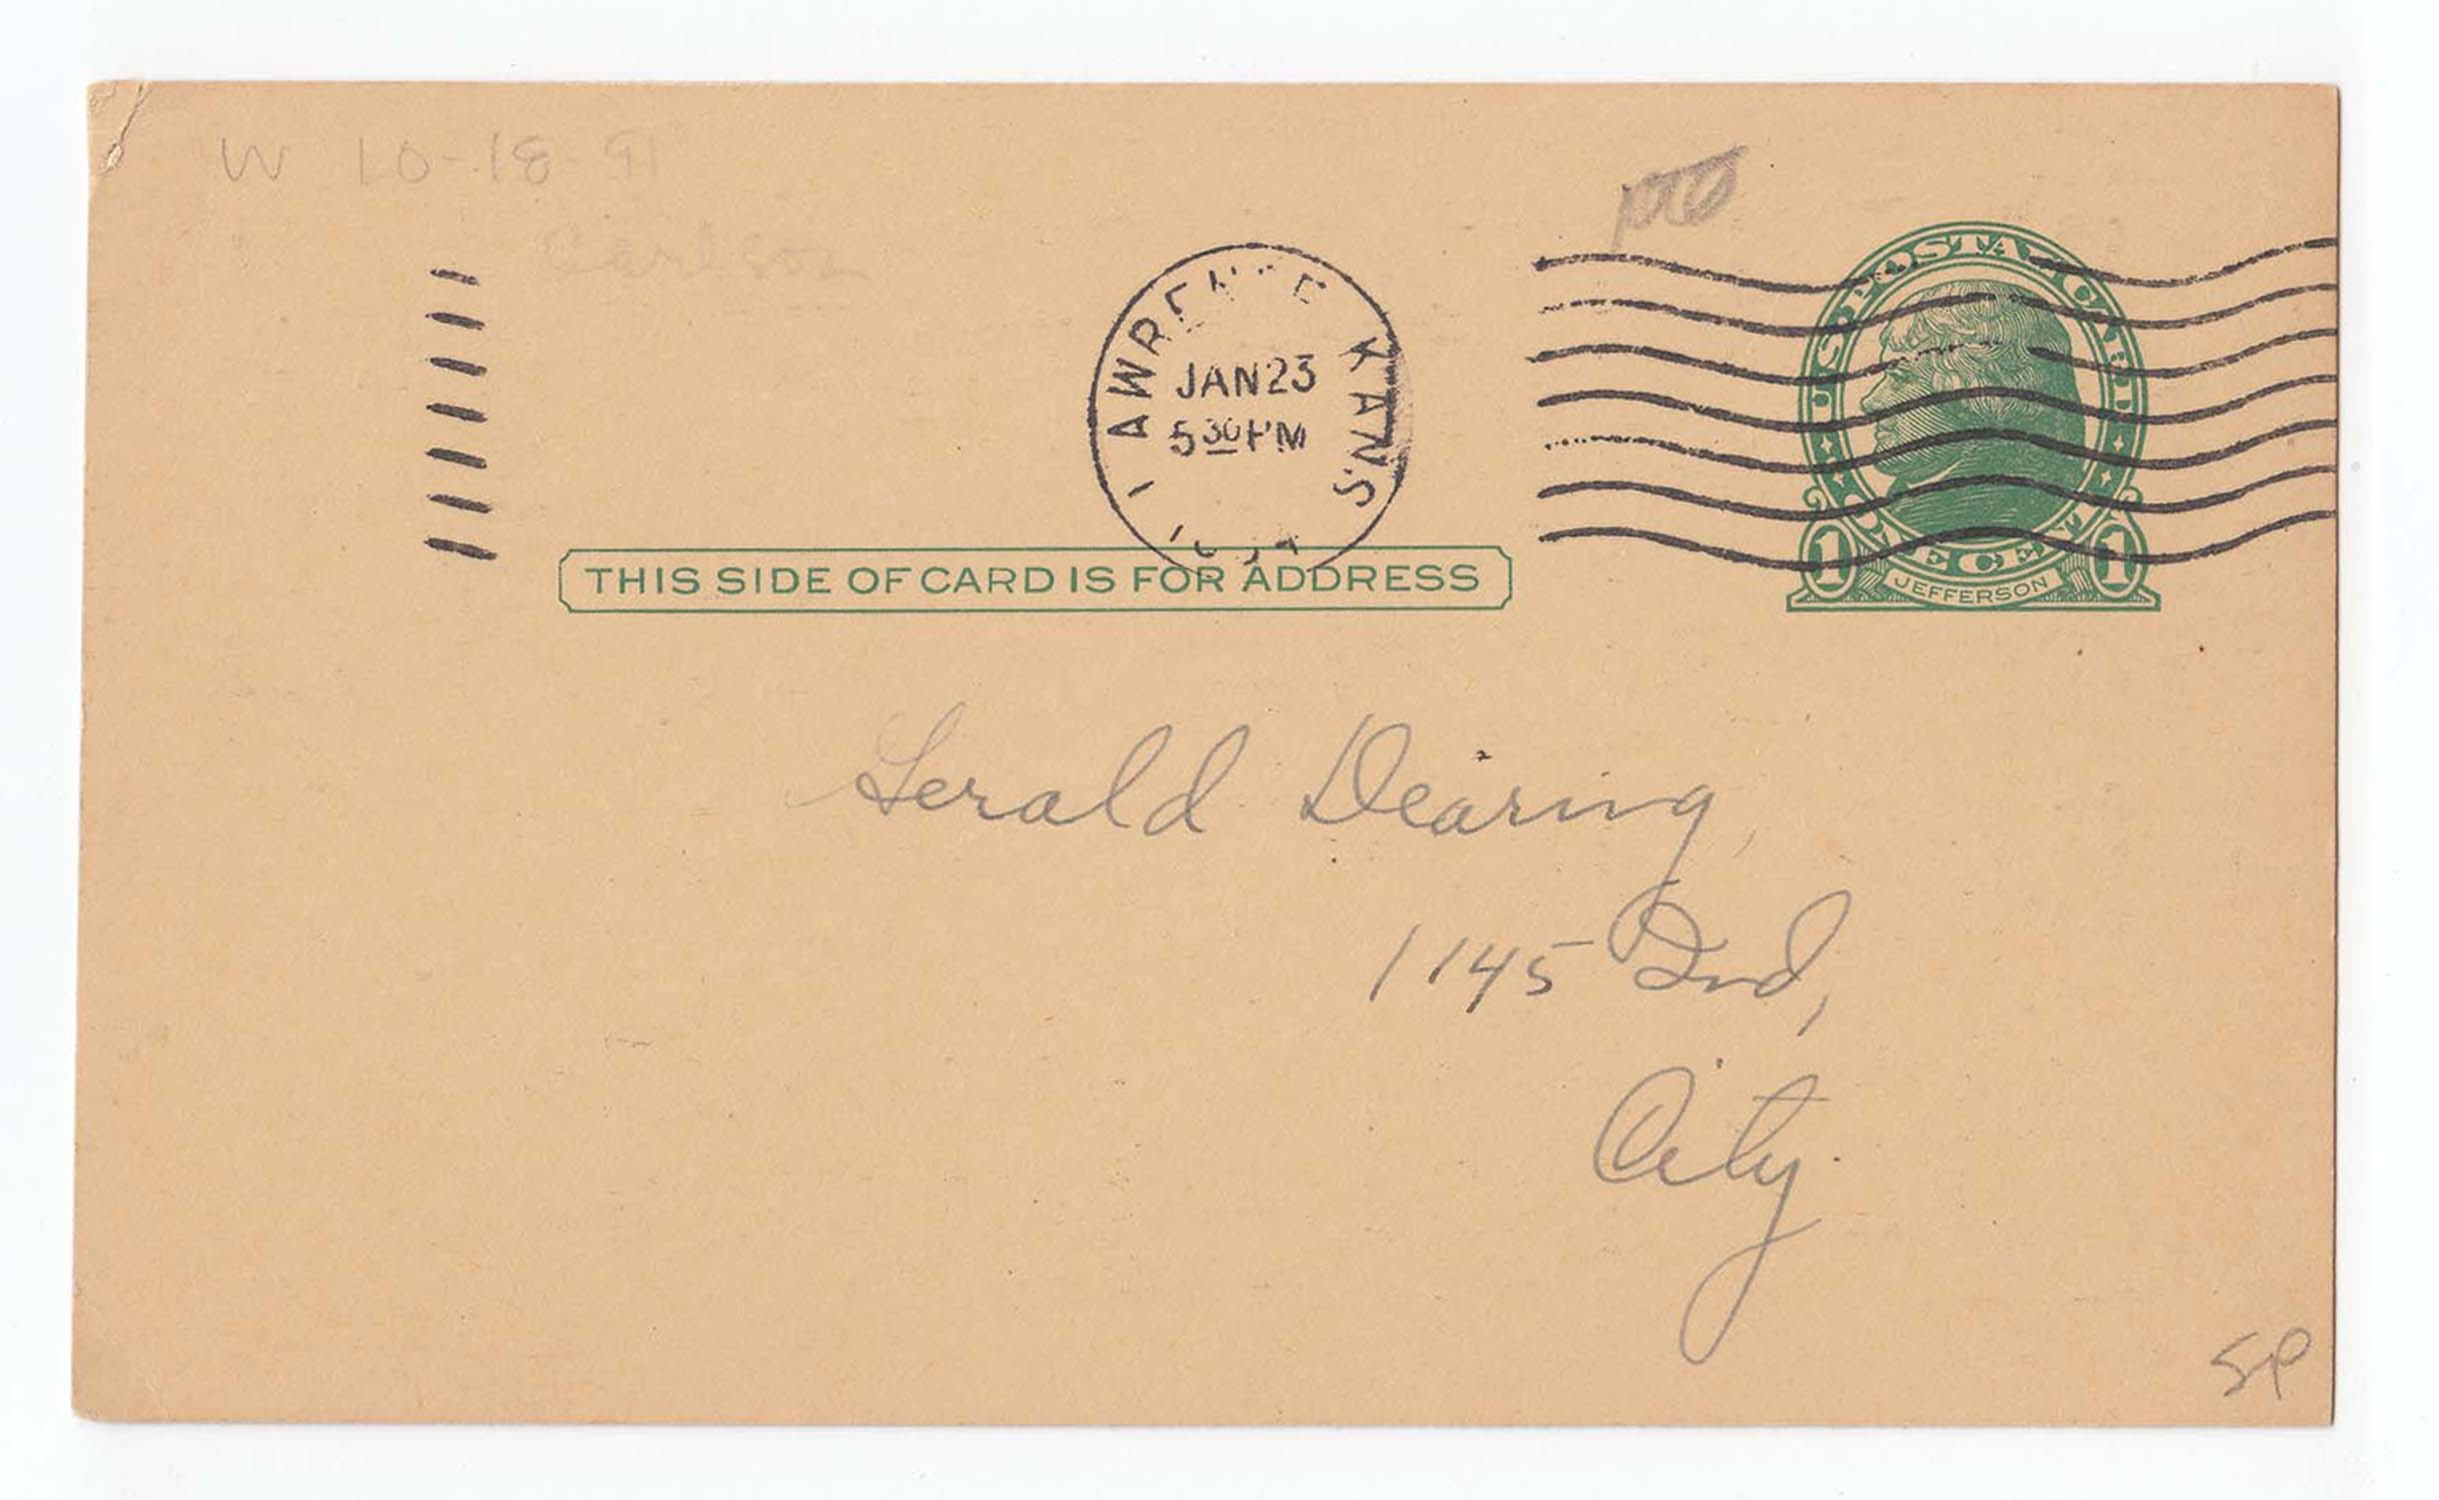 W 10-18-91
Carlson
LAWRENCE KANS.
JAN 23
5 30 PM
U.S. POSTAL CARD
ONE CENT
1 JEFFERSON 1
THIS SIDE OF CARD IS FOR ADDRESS
Gerald Dearing,
1145 Ind,
City.
SP